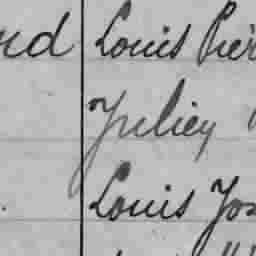 Louis Pier
Juliey
Louis Jos